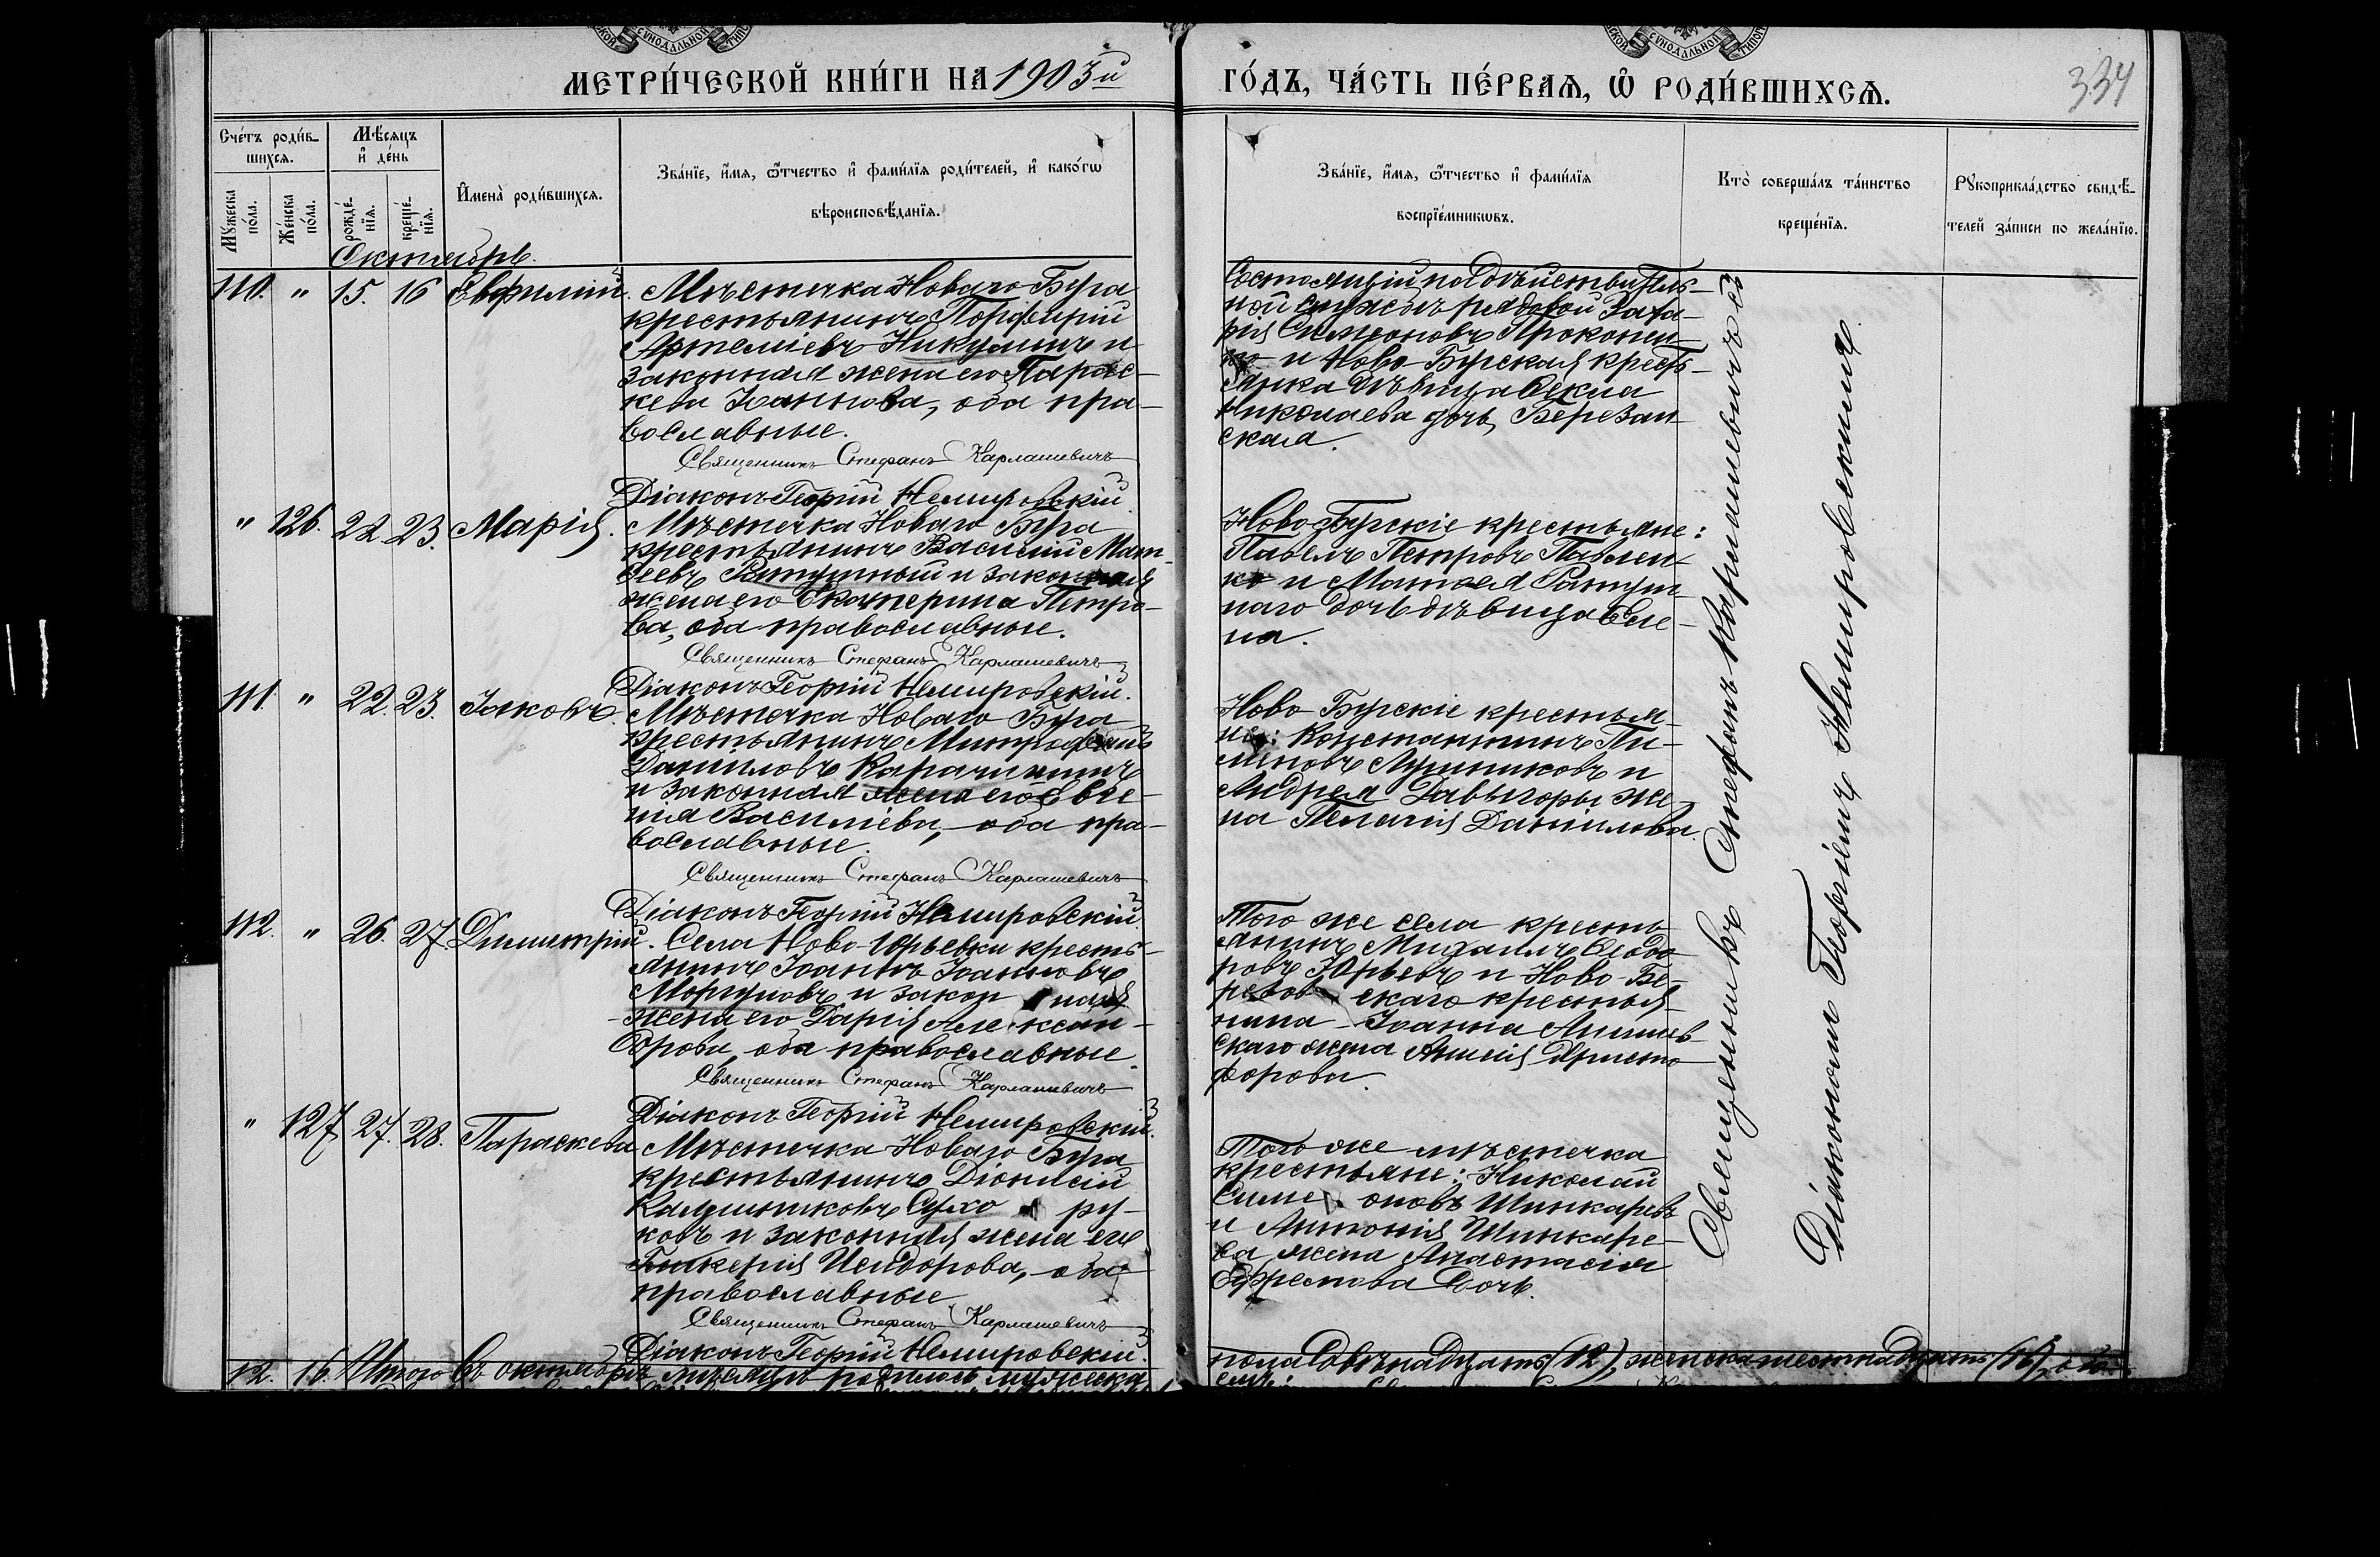 МЕТРИ́ЧЕСКОЙ КНИ́ГИ НА 1903й
ГО́ДЪ, ЧА́СТЬ ПЕ́РВАѦ, Ѡ҆ РОДИ́ВШИХСѦ.
334
Сче́тъ роди́в-
шихсѧ.
Мꙋжеска по́ла.
Же́нска по́ла.
Мѣ́сѧцъ
и҆ де́нь
рожде́-
нїѧ.
креще́-
нїѧ.
И҆мена̀ роди́вшихсѧ.
Зва́нїе, и҆́мѧ, ѻ҆́тчество и҆ фами́лїѧ роди́телей, и҆ како́гѡ
вѣроисповѣ́данїѧ.
Зва́нїе, и҆́мѧ, ѻ҆́тчество и҆ фами́лїѧ
воспрїе́мникѡвъ.
Кто̀ соверша́лъ та́инство
креще́нїѧ.
Рꙋкоприкла́дство свидѣ́-
телей за́писи по жела́нїю.
Октябрь.
110. " 15. 16 Евфимій.
Мѣстечка Новаго Буга
крестьянинъ Порфирій
Артеміевъ Никулинъ и
законная жена его Парас-
кева Іоаннова, оба пра-
вославные.
Священникъ Стефанъ Карлашевичъ
Діаконъ Георгій Немировскій.
Состоящій на дѣйствитель-
ной службѣ рядовой Заха-
рія Симеоновъ Прокопен-
ко и Ново Бугская кресть-
янка дѣвица Ѳекла
Николаева дочь Березан-
ская.
" 126. 22. 23. Марія.
Мѣстечка Новаго Буга
крестьянинъ Василій Мат-
ѳеевъ Ратушный и законная
жена его Екатерина Петро-
ва, оба православные.
Священникъ Стефанъ Карлашевичъ
Діаконъ Георгій Немировскій.
Ново Бугскіе крестьяне:
Павелъ Петровъ Павлен-
ко и Матѳея Ратуш-
наго дочь дѣвица Еле-
на.
111. " 22. 23. Іаковъ.
Мѣстечка Новаго Буга
крестьянинъ Митрофанъ
Даниловъ Карачинъ
и законная жена его Евге-
нія Василіева, оба пра-
вославные.
Священникъ Стефанъ Карлашевичъ
Діаконъ Георгій Немировскій.
Ново Бугскіе крестья-
не: Константинъ Пи-
меновъ Лушниковъ и
Андрея Давыгоры же-
на Пелагія Данилова.
112. " 26. 27. Димитрій.
Села Ново-Юрьевки кресть-
янинъ Іоаннъ Іоанновъ
Моргуновъ и закон ная
жена его Дарія Алексан-
дрова, оба православные.
Священникъ Стефанъ Карлашевичъ
Діаконъ Георгій Немировскій.
Того же села кресть-
янинъ Михаилъ Ѳеодо-
ровъ Юрьевъ и Ново-Бе-
скаго крестья-
нина Іоанна
скаго жена Христо-
форова.
" 127. 27. 28. Параскева
Мѣстечка Новаго Буга
крестьянинъ Діонисій
Калинниковъ Сухо ру-
ковъ и законная жена его
Гликерія Исидорова, оба
православные
Священникъ Стефанъ Карлашевичъ
Діаконъ Георгій Немировскій.
Того же мѣстечка
крестьяне: Николай
Симе оновъ Шинкаревъ
и Антонія Шинкаре-
ва жена Анастасія
Ефремова дочь.
Священникъ Стефанъ Карлашевичъ съ
Діакономъ Георгіемъ Немировскимъ.
12. 16. Итого въ октябрѣ мѣсяцѣ родилось мужеска
пола двѣнадцать (12), женска шестнадцать (16), обо-